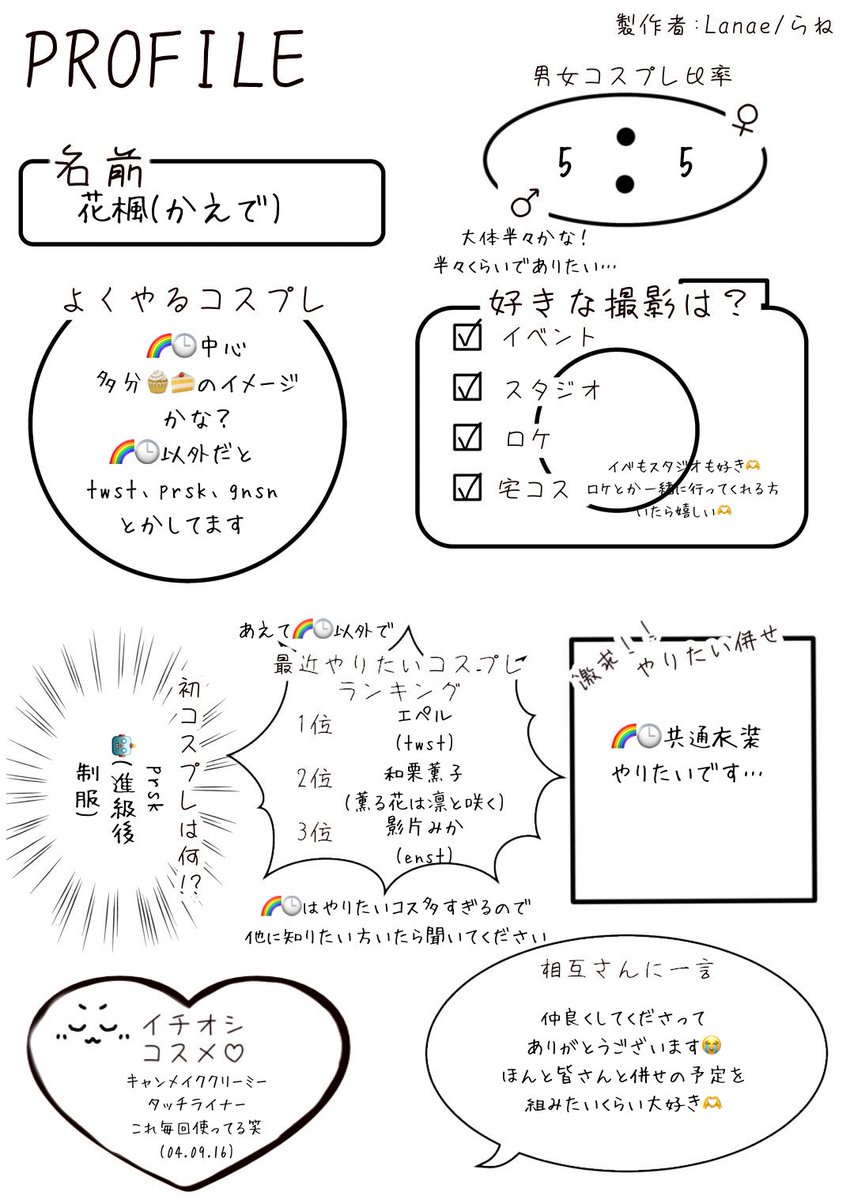 PROFILE
製作者:Lanae/らね
男女コスプレ比率
♀
5 : 5
♂
大体半々かな!
半々くらいでありたい…
名前
花楓(かえで)
よくやるコスプレ
🌈🕒中心
多分🧁🍰のイメージ
かな?
🌈🕒以外だと
twst、prsk、gnsn
とかしてます
好きな撮影は?
☑ イベント
☑ スタジオ
☑ ロケ
☑ 宅コス
イベもスタジオも好き🫶
ロケとか一緒に行ってくれる方
いたら嬉しい🫶
初コスプレは何!?
prsk
🤖(進級後
制服)
あえて🌈🕒以外で
最近やりたいコスプレ
ランキング
1位 エペル
(twst)
2位 和栗薫子
(薫る花は凛と咲く)
3位 影片みか
(enst)
🌈🕒はやりたいコス多すぎるので
他に知りたい方いたら聞いてください
激求!!
やりたい併せ
🌈🕒共通衣装
やりたいです…
イチオシ
コスメ♡
キャンメイククリーミー
タッチライナー
これ毎回使ってる笑
(04.09.16)
相互さんに一言
仲良くしてくださって
ありがとうございます😭
ほんと皆さんと併せの予定を
組みたいくらい大好き🫶